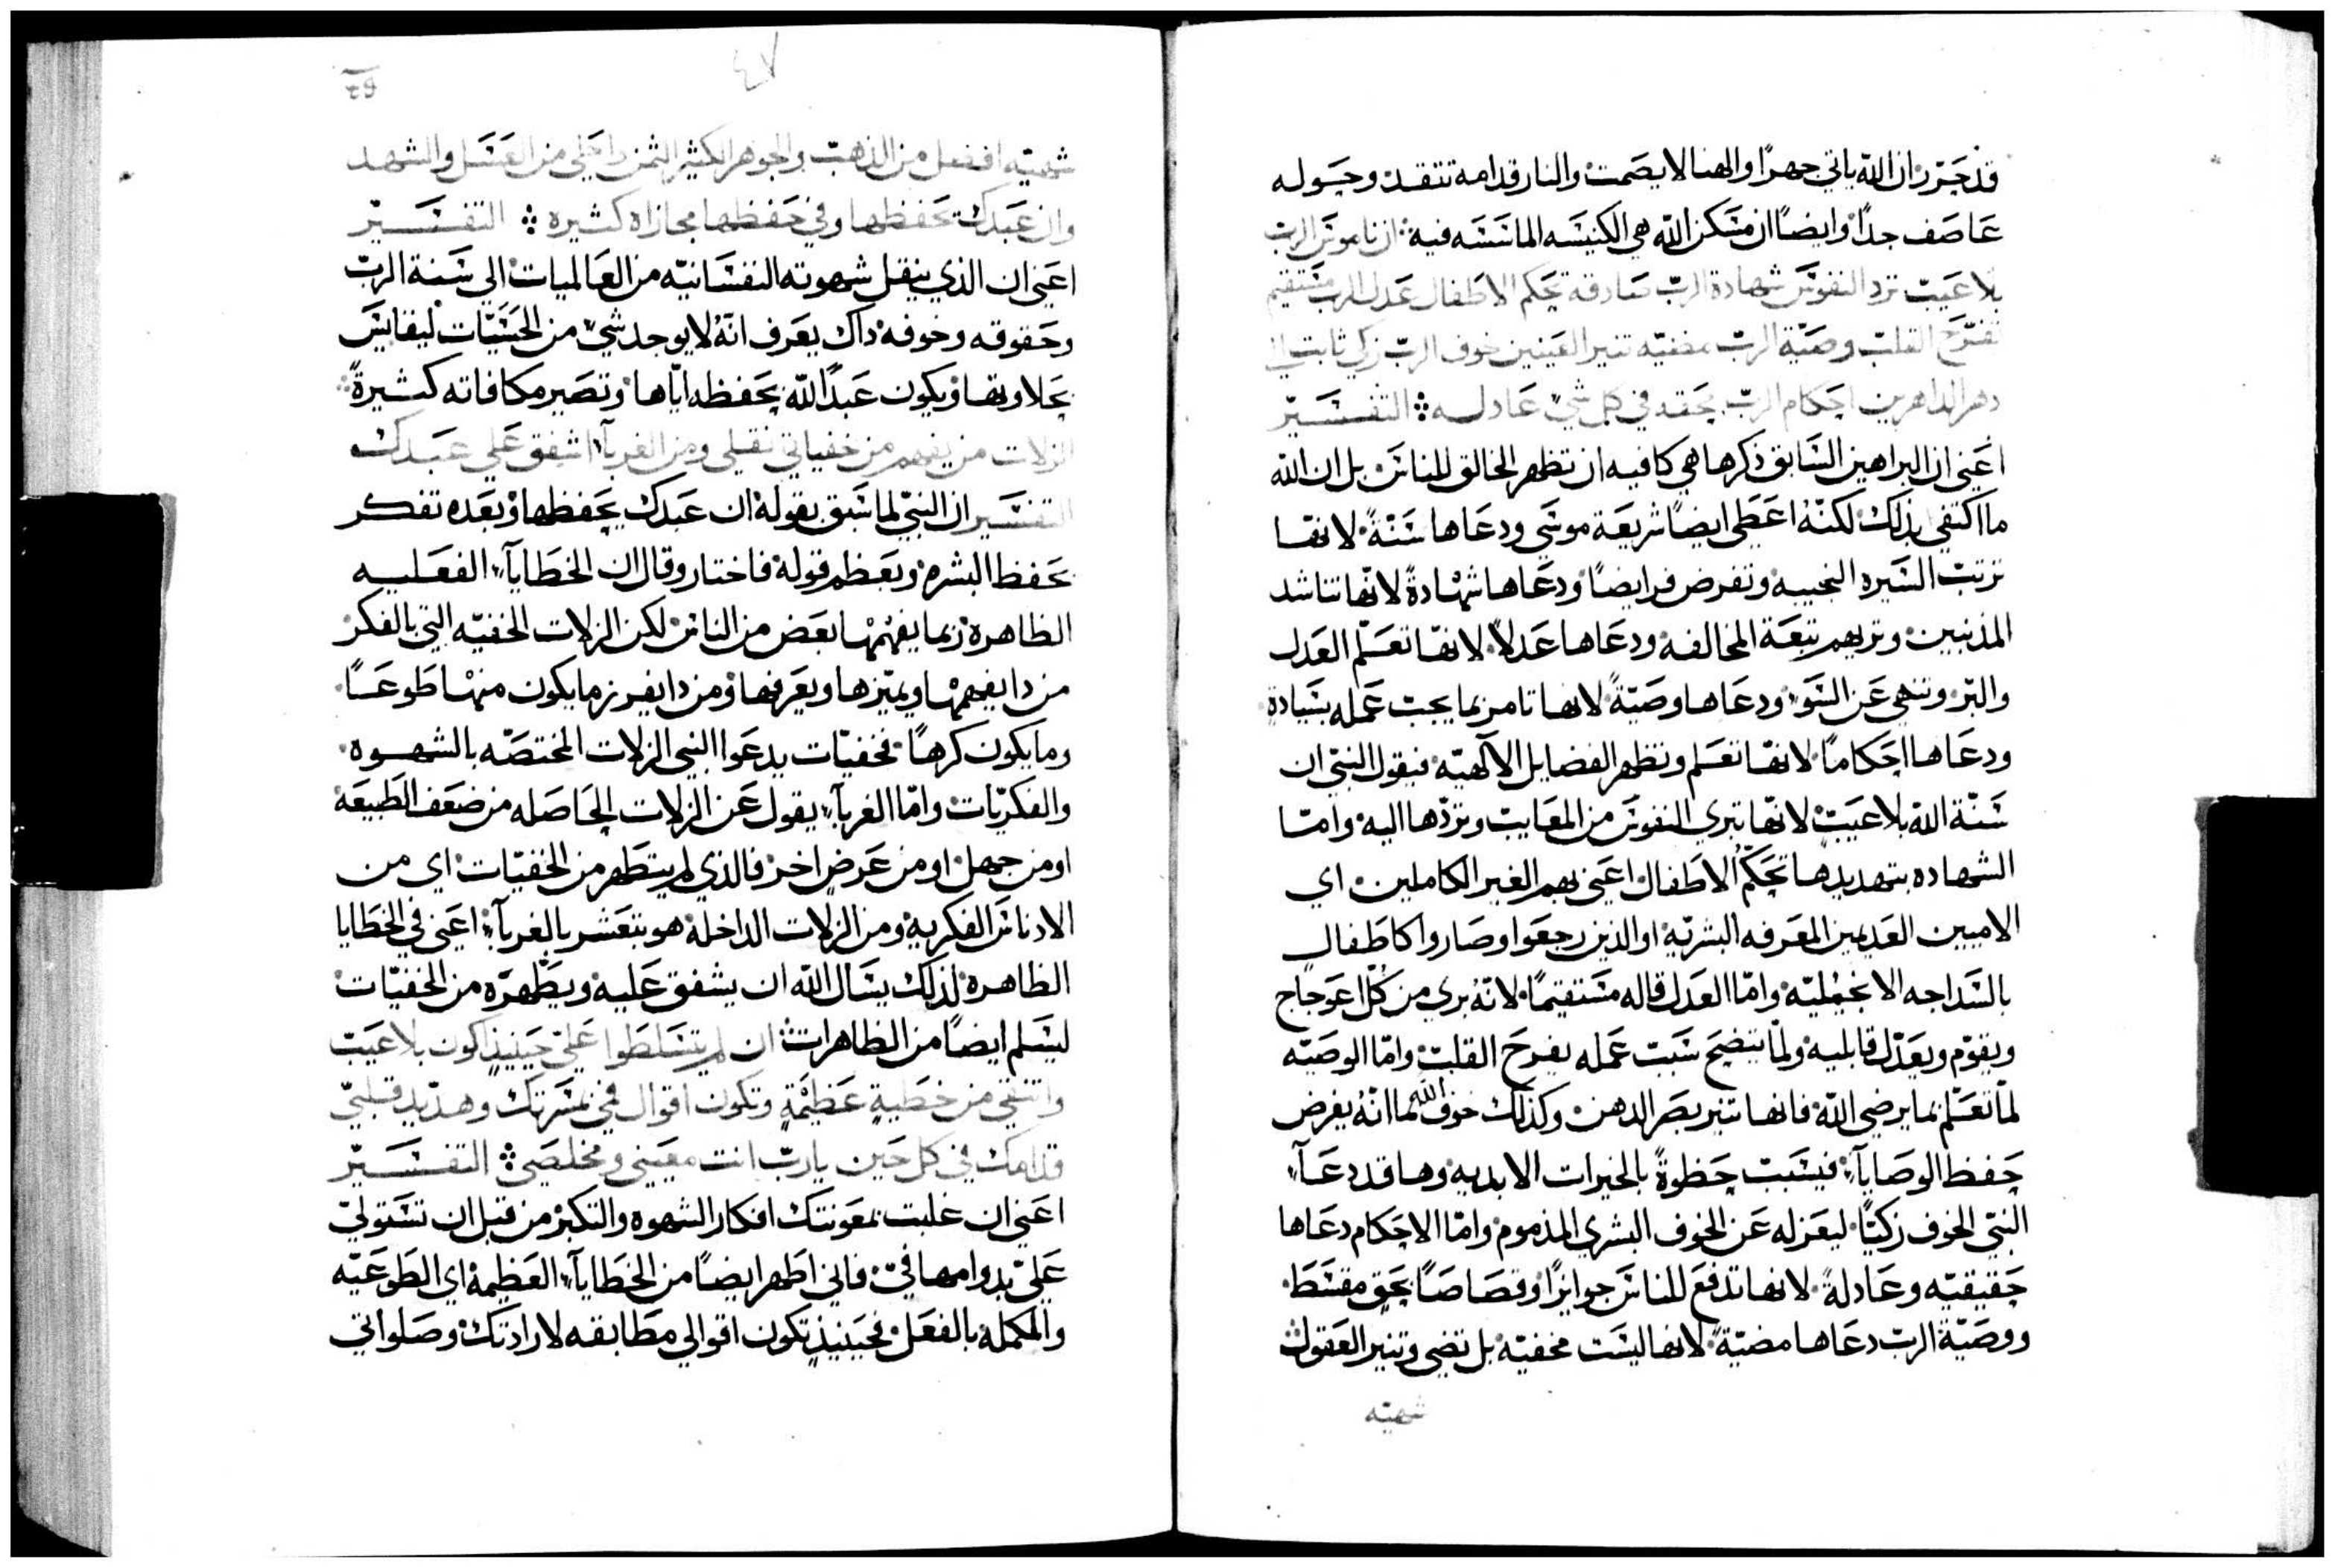 قد حرّر ان الله ياتي جهرًا والهنا لا يصمت والنار قدامه تتقد وحوله
عاصف جدًا وايضًا ان مسكن الله هي الكنيسه الماسسه فيه ان ناموس الرب
بلا عيب ترد النفوس شهادة الرب صادقه تحكم الاطفال عدل الرب مستقيم
تفرّح القلب وصيّة الرب مضيّه تنير العينين خوف الرب زكي ثابت الي
دهر الداهرين احكام الرب بحقه في كل شي عادله التفسير
اعني ان البراهين السابق ذكرها هي كافيه ان تظهر الخالق للناس بل ان الله
ما اكتفي بذلك لكنّهُ اعطي ايضًا شريعة موسي ودعاها سنّةً لانها
ترتب السيره النجيبه وتفرض فرايضًا ودعاها شهادةً لانّها تناشد
المذنبين وتريهم تبعة المخالفه ودعاها عدلاً لانها تعلّم العدل
والبرّ وتنهي عن السوء ودعاها وصيّةً لانها تامر بما يجب عمله بسيادةٍ
ودعاها احكامًا لانها تعلم وتظهر الفضايل الالهيّه فيقول النبي ان
سنّة الله بلا عيب لانّها تبري النفوس من المعايب وتردّها اليه وامّا
الشهاده بتهديدها تحكّم الاطفال اعني بهم الغير الكاملين اي
الاميين العديمين المعرفه البشريّه او الذين رجعوا وصاروا كاطفال
بالسداجه الانجيليّه وامّا العدل قاله مستقيمًا لانّهُ بري من كلّ اعوجاج
ويقوّم ويعدّل قابليه ولمّا يتضح سبب عمله يفرح القلب وامّا الوصيّه
لمّا تعلّم بما يرضي الله فانها تنير بصر الدهن وكذلك خوف الله لما انّهُ يفرض
حفظ الوصايا فيسبب حظوةً بالخيرات الابديه وها قد دعا
النبي الخوف زكيًا ليعزله عن الخوف البشري المذموم وامّا الاحكام دعاها
حقيقيّه وعادلةً لانها تدفع للناس جوايزًا وقصاصًا بحقٍ مقسط
ووصيّة الرب دعاها مضيّةً لانها ليست مخفيّه بل تضي وتنير العقول
شهيّه
شهيّه افضل من الذهب والجوهر الكثير الثمن واحلي من العسل والشهد
وان عبدك يحفظها وفي حفظها مجازاه كثيره التفسير
اعني ان الذي ينقل شهوته النفسانيّه من العالميات الي سنة الرب
وحقوقه وخوفه داك يعرف انّهُ لا يوجد شي من الحسيّات ليقايس
بحلاوتها ويكون عبدًا لله بحفظه ايّاها وتصير مكافاته كثيرةً
الزلات من يفهم من خفياتي نقيني ومن الغربا اشفق علي عبدك
التفسير ان النبي لما سبق بقوله ان عبدك يحفظها وبعده تفكر
بحفظ البشره وبعظم قوله فاختار وقال ان الخطايا الفعليه
الظاهره ربما يفهمها بعض من الناس لكن الزلات الخفيّه التي بالفكر
من دا يفهمها ويميّزها ويعرفها ومن دا يفرز ما يكون منها طوعًا
وما يكون كرهًا فخفيّات يدعوا النبي الزلات المختصّه بالشهوه
والفكريّات وامّا الغربا يقول عن الزلات الحاصله من ضعف الطبيعة
او من جهل او من عرضٍ اخر فالذي لم يتطهر من الخفيّات اي من
الادناس الفكريه ومن الزلات الداخله هو يتعسّر بالغربا اعني في الخطايا
الظاهره لذلك يسال الله ان يشفق عليه ويطهّره من الخفيّات
ليسلم ايضًا من الظاهرات ان لم يتسلطوا عليّ حينيذٍ اكون بلا عيب
واتنقي من خطيةٍ عظيمةٍ وتكون اقوال فمي بمسرتك وهديد قلبي
قدامك في كل حين يارب انت معيني ومخلصي التفسير
اعني ان غلبت بمعونتك افكار الشهوه والتكبر من قبل ان تستولي
عليّ بدوامها فيّ فاني اطهر ايضًا من الخطايا العظيمة اي الطوعيّه
والمكمله بالفعل فحينيذٍ تكون اقوالي مطابقه لارادتك وصلواتي